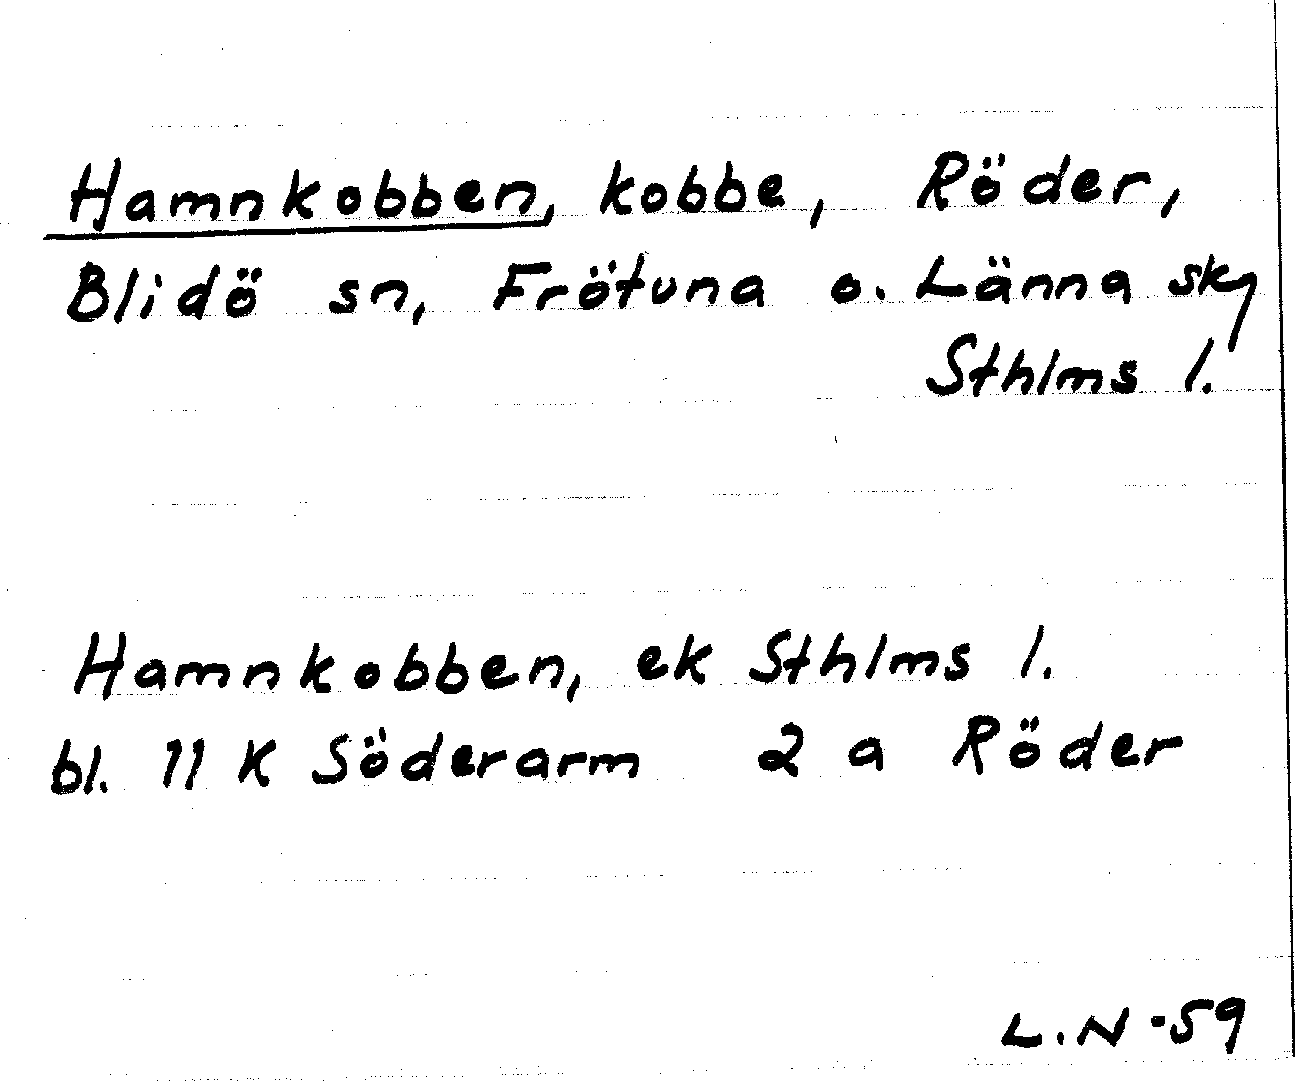 Hamnkobben, kobbe, Röder,
Blidö sn, Frötuna o. Länna skg
Sthlms l.
Hamnkobben, ek Sthlms l.
bl. 11 K Söderarm 2 a Röder
L.N -59